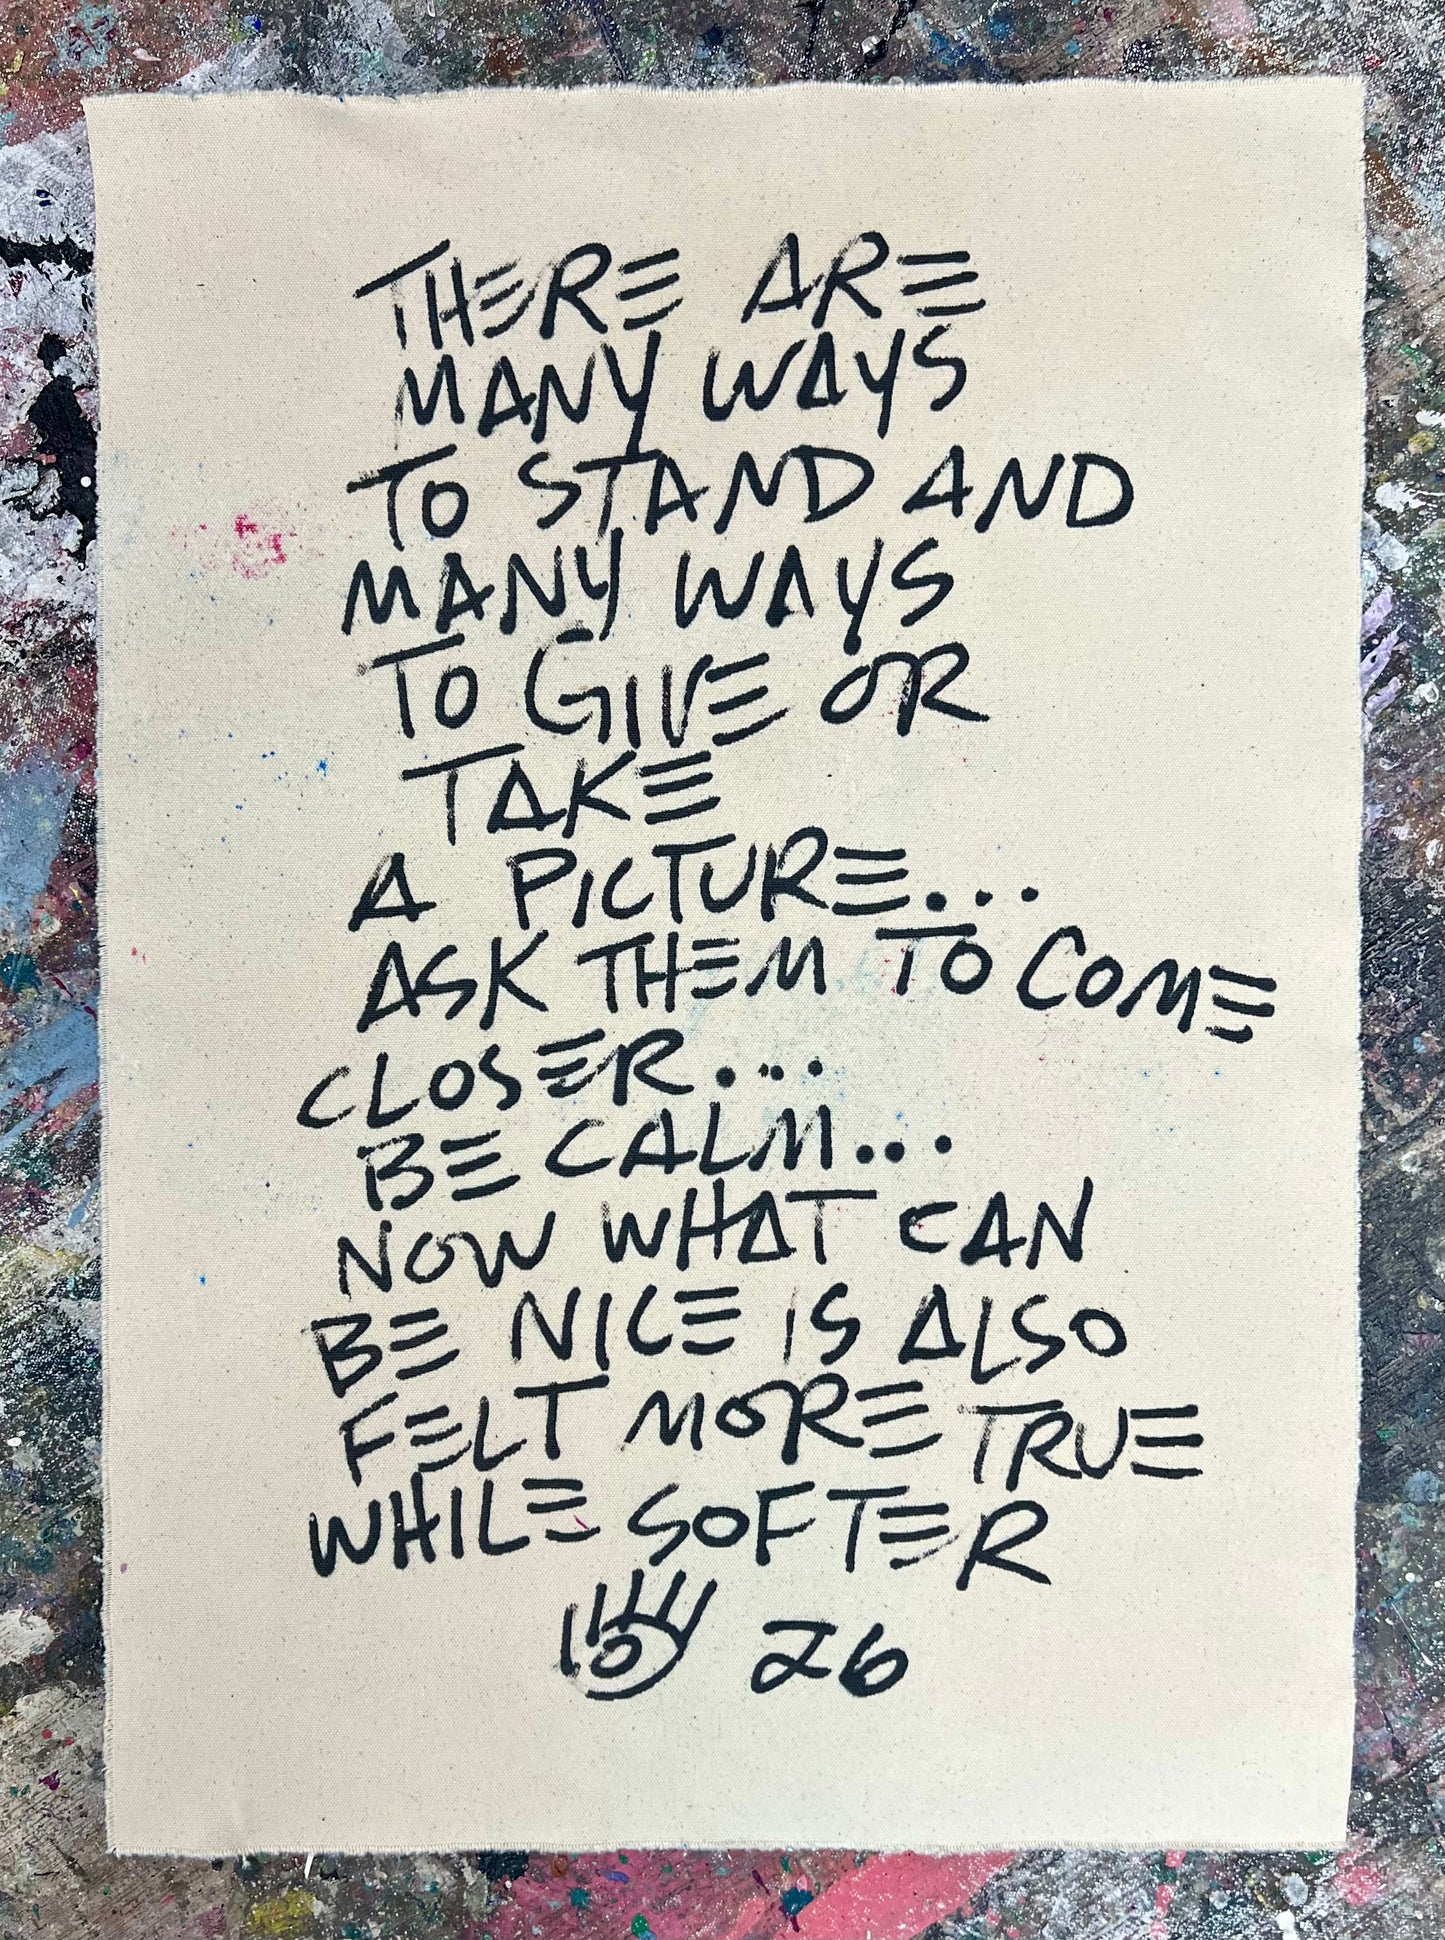 THERE ARE
MANY WAYS
TO STAND AND
MANY WAYS
TO GIVE OR
TAKE
A PICTURE...
ASK THEM TO COME
CLOSER...
BE CALM...
NOW WHAT CAN
BE NICE IS ALSO
FELT MORE TRUE
WHILE SOFTER
26